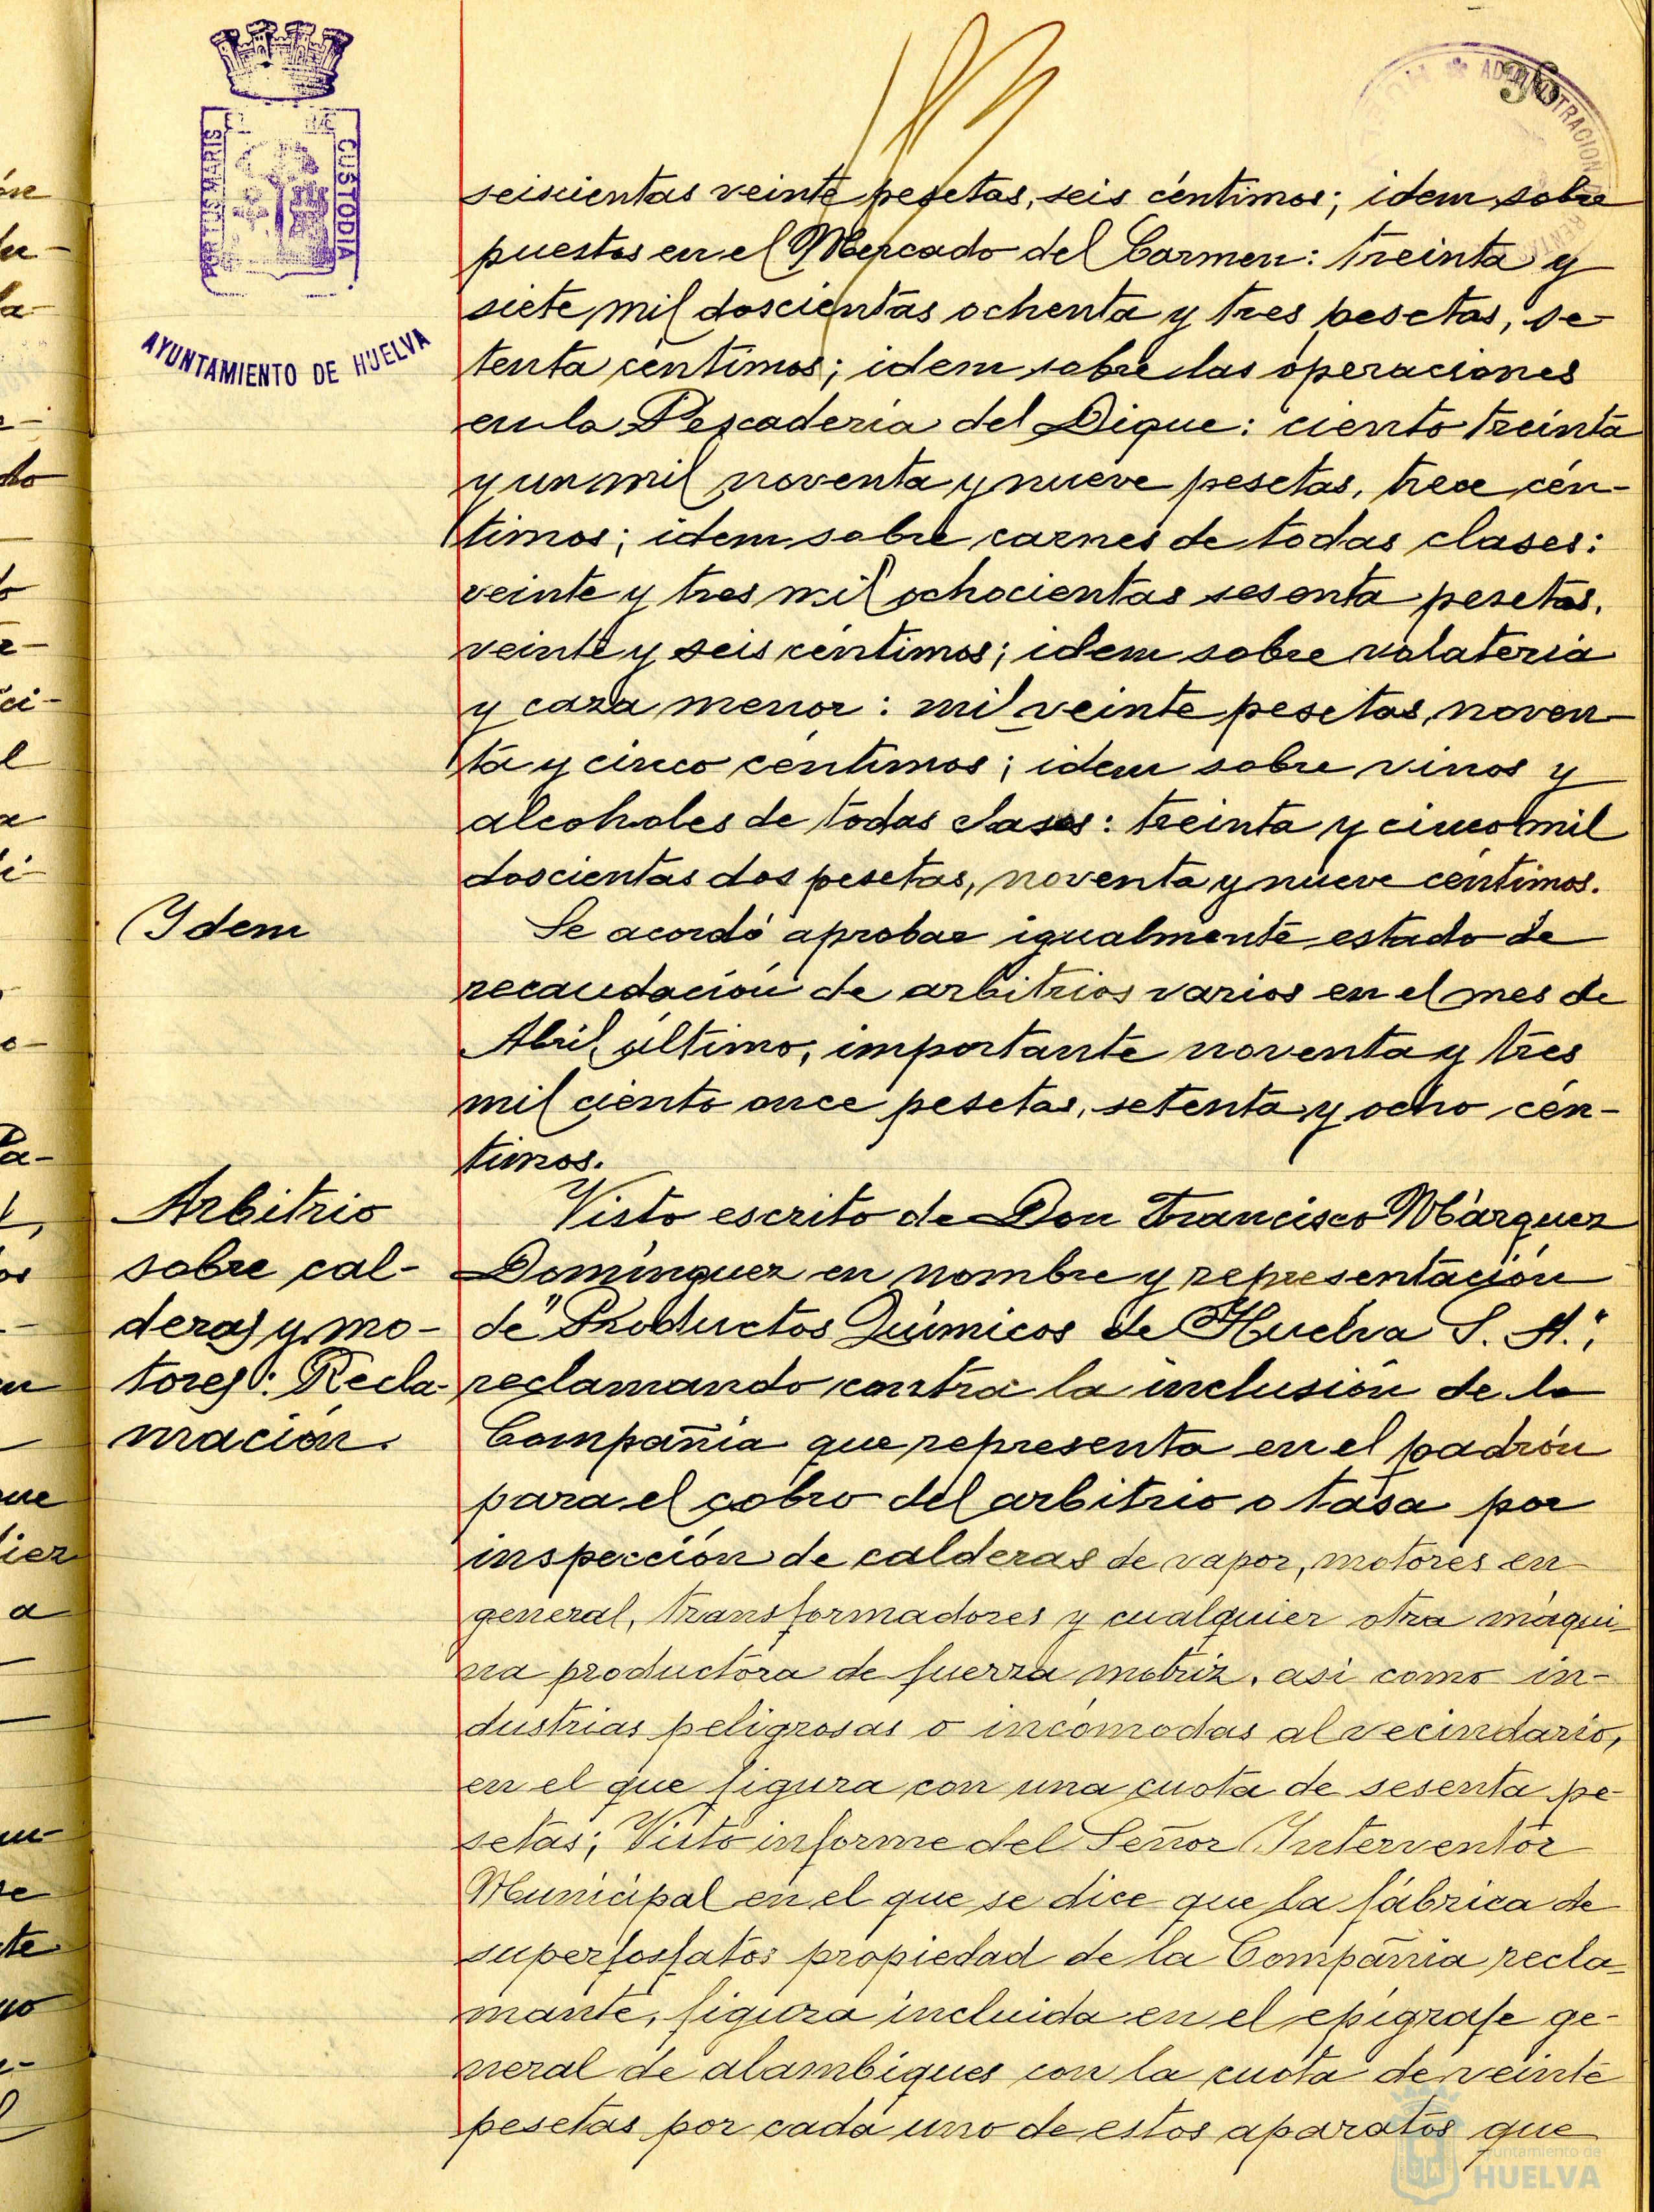 36
PORTUS MARIS
CUSTODIA
AYUNTAMIENTO DE HUELVA
ADMINISTRACION
RENTAS
seiscientas veinte pesetas, seis céntimos; idem sobre
puestos en el Mercado del Carmen: treinta y
siete mil doscientas ochenta y tres pesetas, se-
tenta céntimos; idem sobre las operaciones
en la Pescadería del Dique: ciento treinta
y un mil noventa y nueve pesetas, trece cén-
timos; idem sobre carnes de todas clases:
veinte y tres mil ochocientas sesenta pesetas,
veinte y seis céntimos; idem sobre volatería
y caza menor: mil veinte pesetas, noven-
ta y cinco céntimos; idem sobre vinos y
alcoholes de todas clases: treinta y cinco mil
doscientas dos pesetas, noventa y nueve céntimos.
Ydem
Se acordó aprobar igualmente estado de
recaudación de arbitrios varios en el mes de
Abril último, importante noventa y tres
mil ciento once pesetas, setenta y ocho cén-
timos.
Arbitrio
sobre cal-
deras y mo-
tores: Recla-
mación.
Visto escrito de Don Francisco Márquez
Domínguez en nombre y representación
de "Productos Químicos de Huelva S. A.";
reclamando contra la inclusión de la
Compañía que representa en el padrón
para el cobro del arbitrio o tasa por
inspección de calderas de vapor, motores en
general, transformadores y cualquier otra máqui-
na productora de fuerza motriz, asi como in-
dustrias peligrosas o incómodas al vecindario,
en el que figura con una cuota de sesenta pe-
setas; Visto informe del Señor Interventor
Municipal en el que se dice que la fábrica de
superfosfatos propiedad de la Compañía recla-
mante, figura incluida en el epígrafe ge-
neral de alambiques con la cuota de veinte
pesetas por cada uno de estos aparatos que
Ayuntamiento de
HUELVA